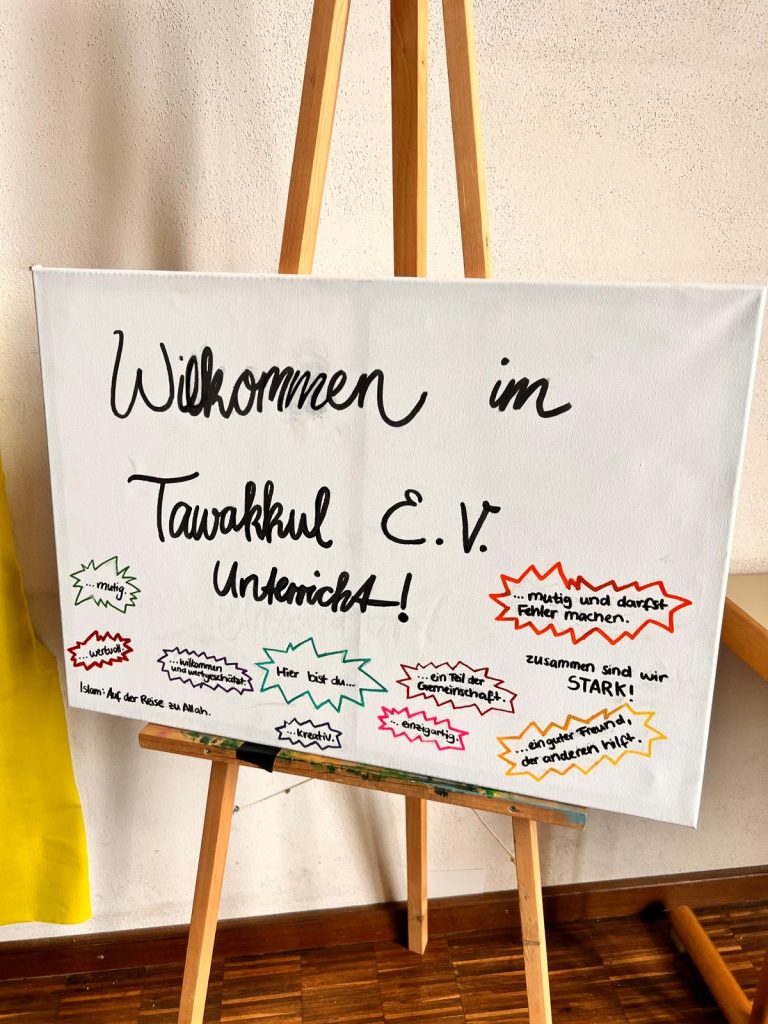 Wilkommen im
Tawakkul E.V.
Unterricht!
...mutig.
...wertvoll.
...wilkommen
und wertgeschätzt.
Hier bist du...
...ein Teil der
Gemeinschaft.
...mutig und darfst
Fehler machen.
zusammen sind wir
STARK!
Islam: Auf der Reise zu Allah.
...kreativ.
...einzigartig.
...ein guter Freund,
der anderen hilft.